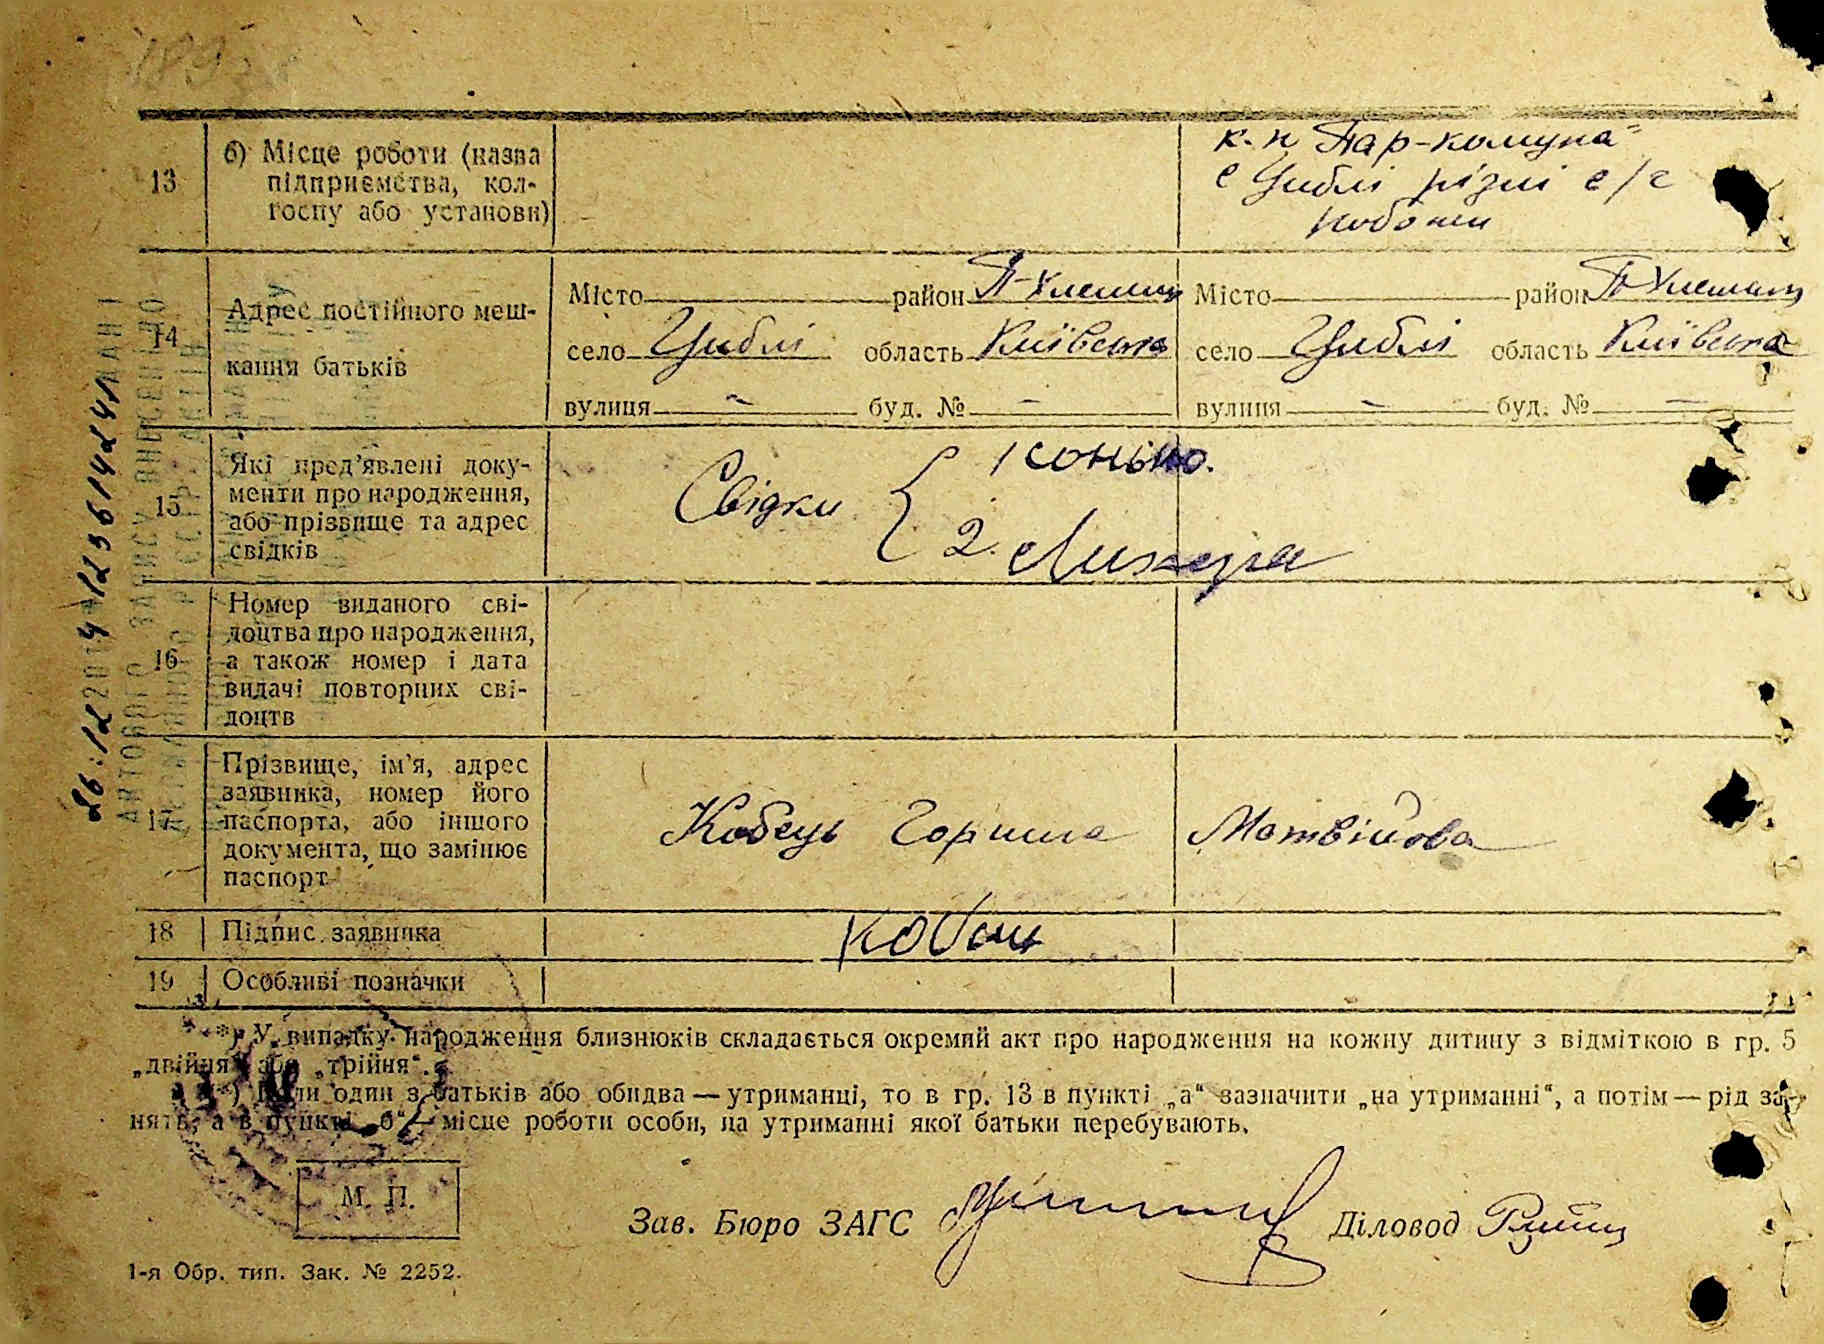 13
б) Місце роботи (назва
підприємства, кол-
госпу або установи)
к. п Пар-комуна"
с Циблі різні с/г
роботи
14
Адрес постійного меш-
кання батьків
Місто район П-Хмельн
село Циблі область Київська
вулиця - буд. № -
Місто район П-Хмельн
село Циблі область Київська
вулиця - буд. № -
15
Які пред’явлені доку-
менти про народження,
або прізвище та адрес
свідків
Свідки { 1
2.
16
Номер виданого сві-
доцтва про народження,
а також номер і дата
видачі повторних сві-
доцтв
17
Прізвище, ім’я, адрес
заявника, номер його
паспорта, або іншого
документа, що замінює
паспорт
Кобець Горпина Матвійова
18 Підпис заявника
19 Особливі позначки
*) У випадку народження близнюків складається окремий акт про народження на кожну дитину з відміткою в гр. 5
„двійня“ або „трійня“.
*) Коли один з батьків або обидва — утриманці, то в гр. 13 в пункті „а“ зазначити „на утриманні“, а потім — рід за-
нять, а в пункті „б“ — місце роботи особи, на утриманні якої батьки перебувають.
М. П.
Зав. Бюро ЗАГС Діловод
1-я Обр. тип. Зак. № 2252.